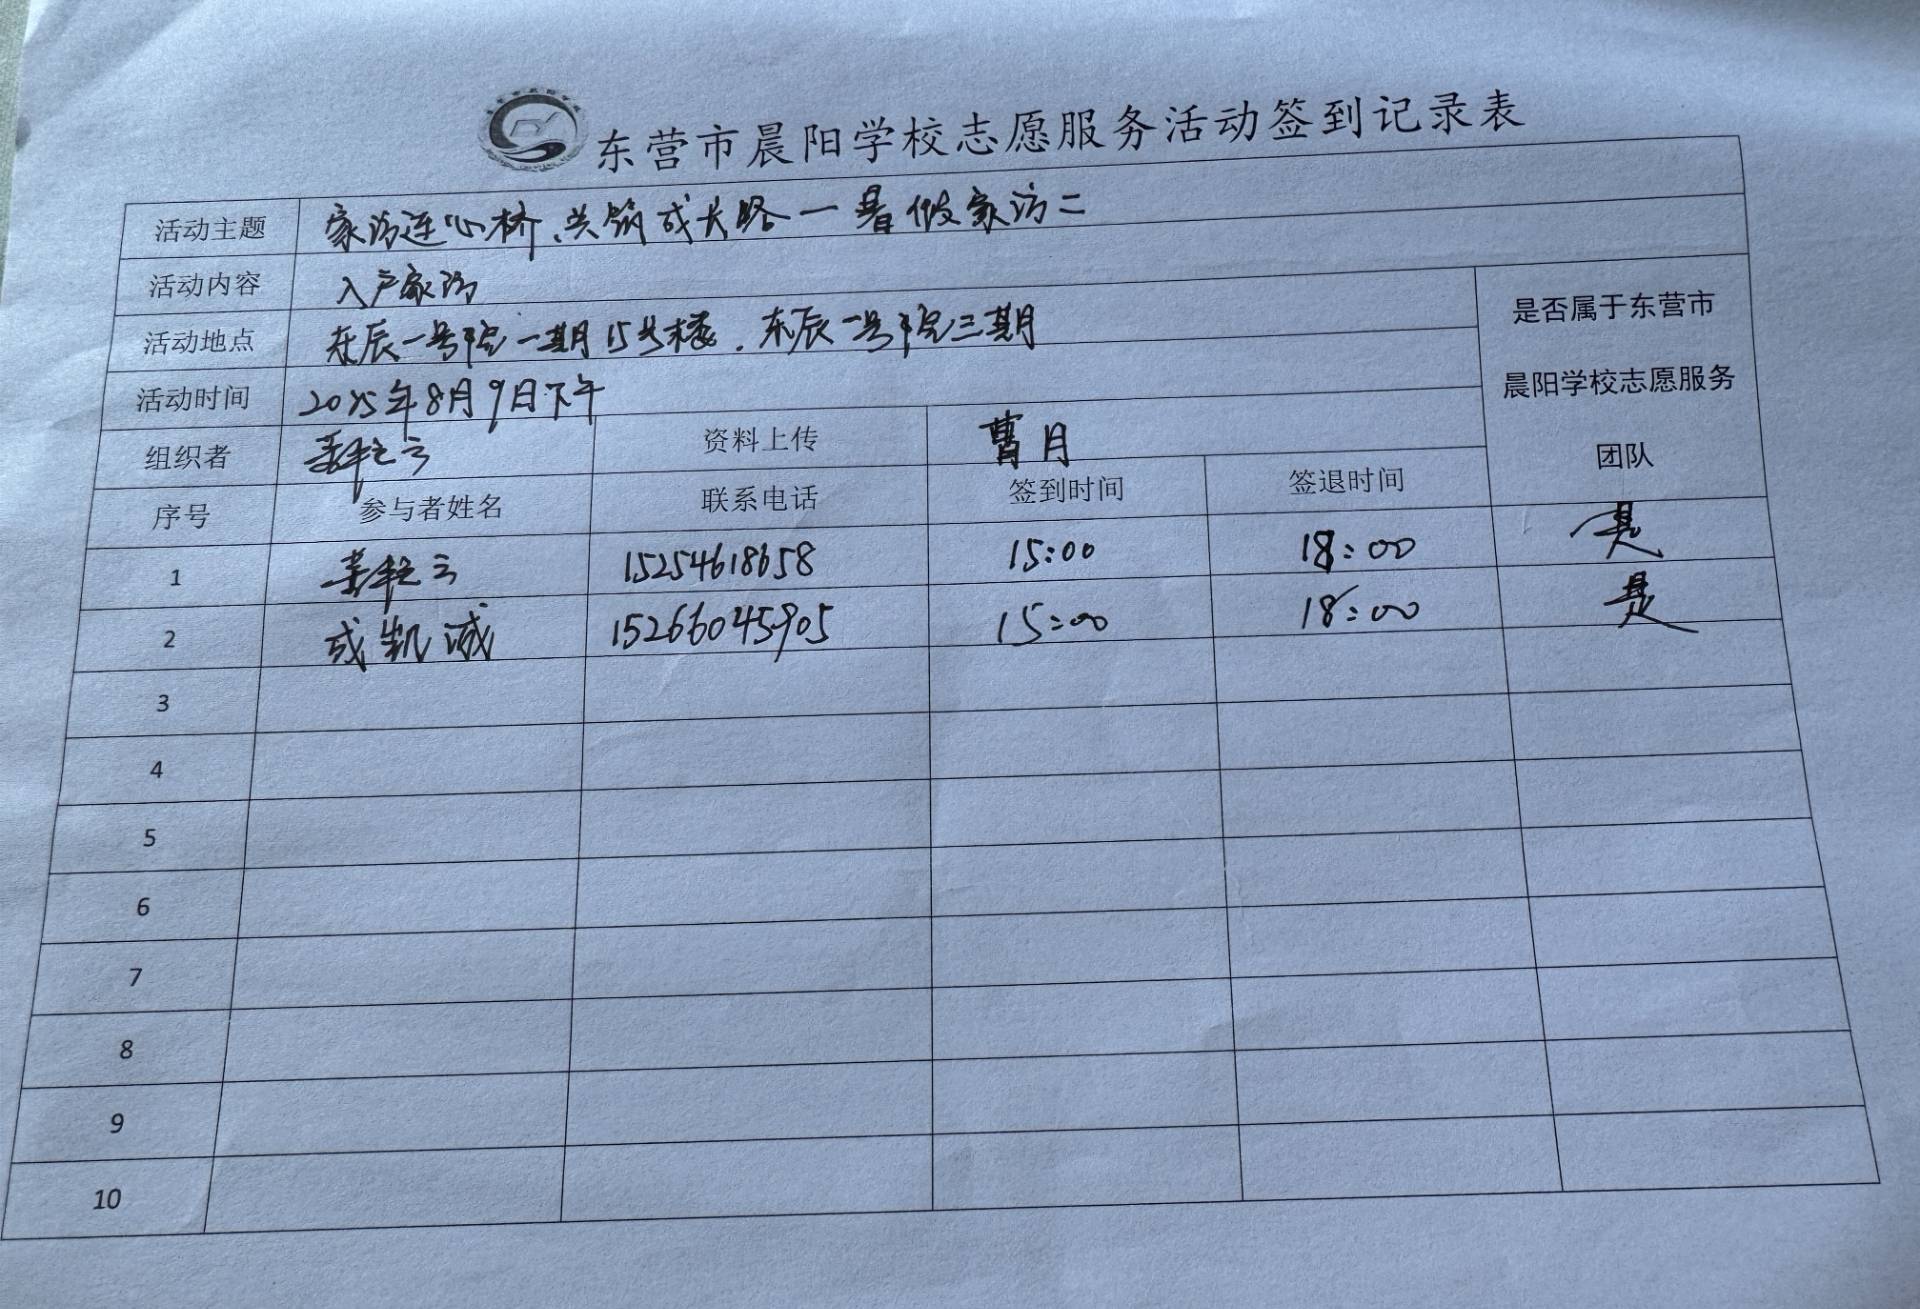 东营市晨阳学校志愿服务活动签到记录表
活动主题 家访连心桥、共筑成长路一暑假家访二
活动内容 入户家访
活动地点 东辰一号院一期15号楼、东辰一号院三期
活动时间 2025年8月9日下午
是否属于东营市
晨阳学校志愿服务
团队
组织者 资料上传 曹月
序号 参与者姓名 联系电话 签到时间 签退时间
1 15254618658 15:00 18:00 是
2 成凯诚 15266045905 15:00 18:00 是
3
4
5
6
7
8
9
10